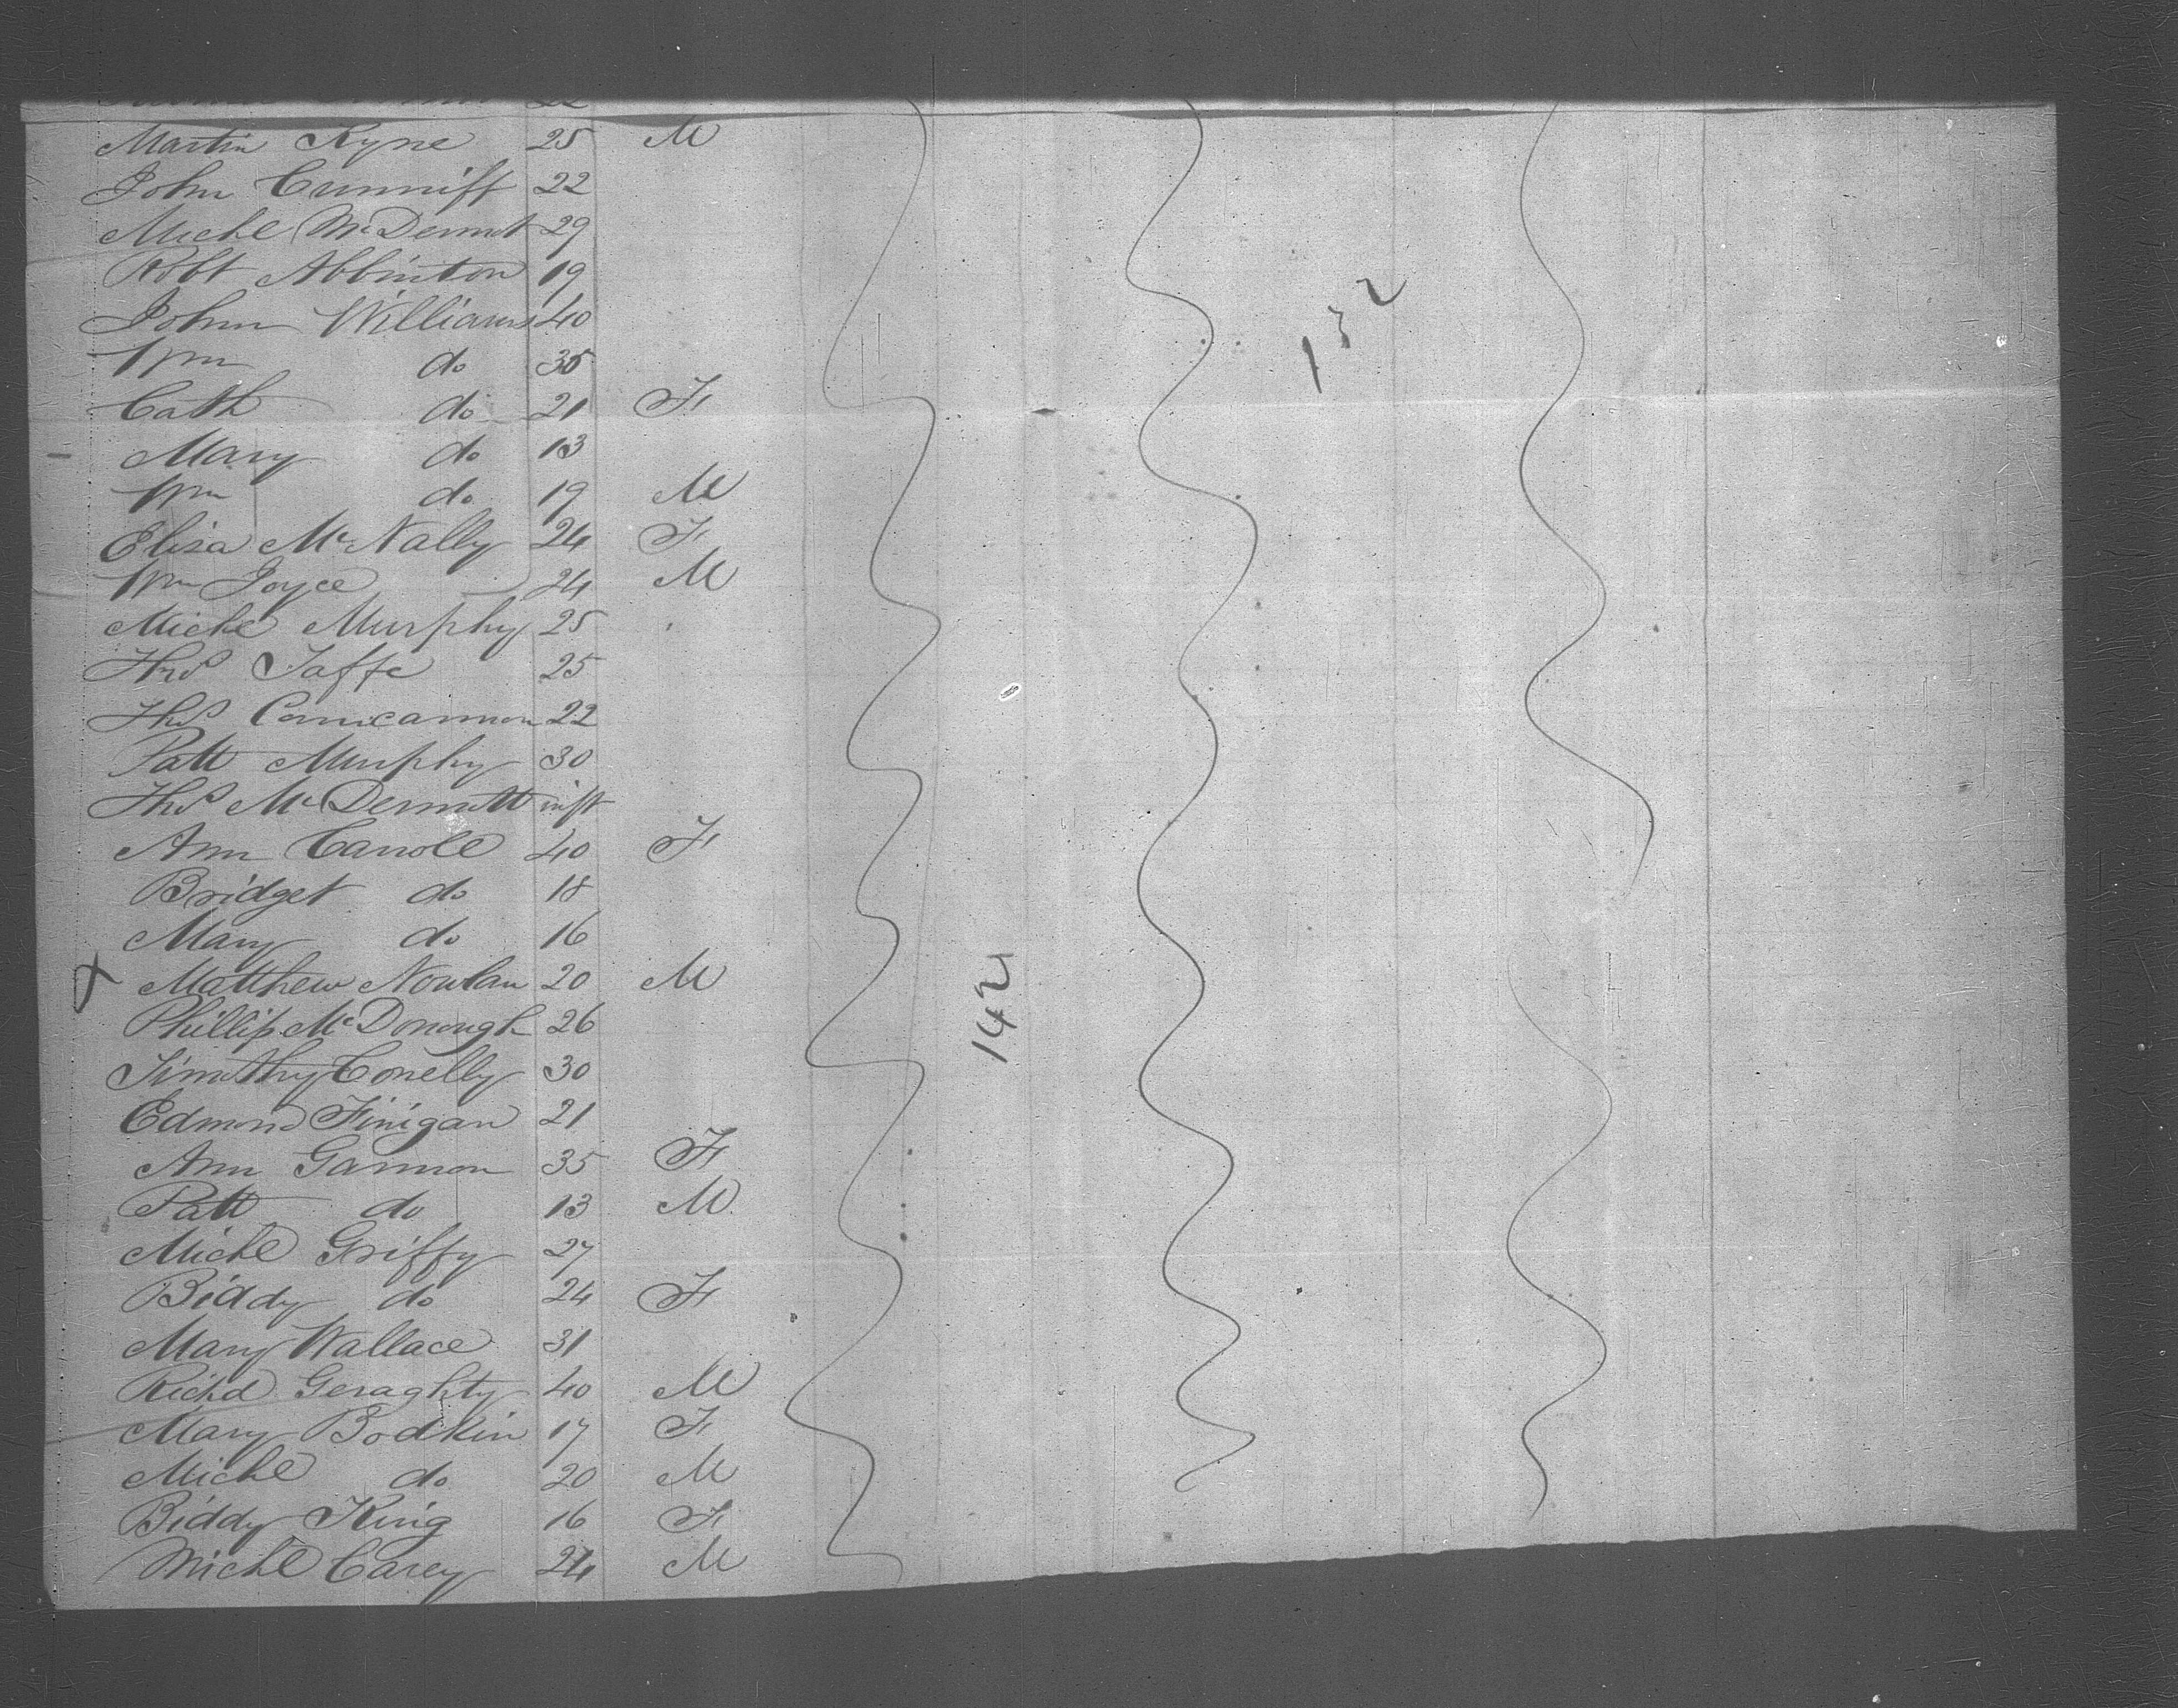 22
Martin Kyne 25 M
John Cunniff 22
Michl McDermot 29
Robt Abbinton 19
John Williams 40
Wm do 35
Cath do 21 F
Mary do 13
Wm do 19 M
Eliza McNally 24 F
Wm Joyce 24 M
Michl Murphy 25
Thos Taffe 25
Thos Conncannon 22
Patt Murphy 30
Thos McDermott inft
Ann Carroll 40 F
Bridget do 18
Mary do 16
X Matthew Nowlan 20 M
Phillip McDonough 26
Timothy Conelly 30
Edmond Finigan 21
Ann Gannon 35 F
Patt do 13 M
Michl Griffy 27
Biddy do 24 F
Mary Wallace 31
Richd Geraghty 40 M
Mary Bodkin 17 F
Michl do 20 M
Biddy King 16 F
Michl Carey 24 M
132
142